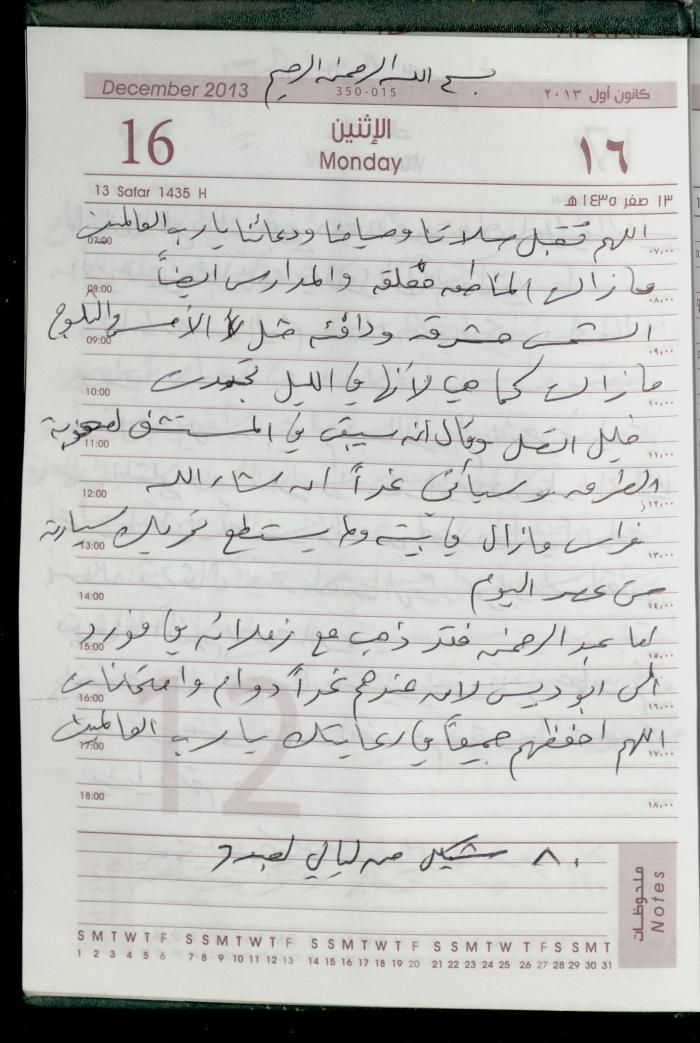 بسم الله الرحمن الرحيم
December 2013 350-015 كانون أول ٢٠١٣
16 الإثنين ١٦
Monday
13 Safar 1435 H ١٣ صفر ١٤٣٥ هـ
اللهم تقبل صلاتنا وصيامنا ودعائنا يا رب العالمين
07:00 ٠٧,٠٠
ما زالت المناطق مغلقة والمدارس ايضاً
08:00 ٠٨,٠٠
الشمس مشرقة ودافئة مثل الأمس والثلوج
09:00 ٠٩,٠٠
ما زالت كما هي لأنها في الليل تجمدت
10:00 ١٠,٠٠
خليل اتصل وقال انه سيبقى في المستشفى لصعوبة
11:00 ١١,٠٠
الطرق وسيأتي غداً ان شاء الله
12:00 ١٢,٠٠
فراس ما زال في بيته ولم يستطع تحريك سيارته
13:00 ١٣,٠٠
من عصر اليوم
14:00 ١٤,٠٠
اما عبد الرحمن فقد ذهب مع زملائه في فورد
15:00 ١٥,٠٠
الى ابو ديس لان عندهم غداً دوام وامتحانات
16:00 ١٦,٠٠
اللهم احفظهم جميعاً في رعايتك يا رب العالمين
17:00 ١٧,٠٠
12
18:00 ١٨,٠٠
٨٠ شيكل من ليالي
ملحوظات
Notes
S M T W T F S S M T W T F S S M T W T F S S M T W T F S S M T
1 2 3 4 5 6 7 8 9 10 11 12 13 14 15 16 17 18 19 20 21 22 23 24 25 26 27 28 29 30 31